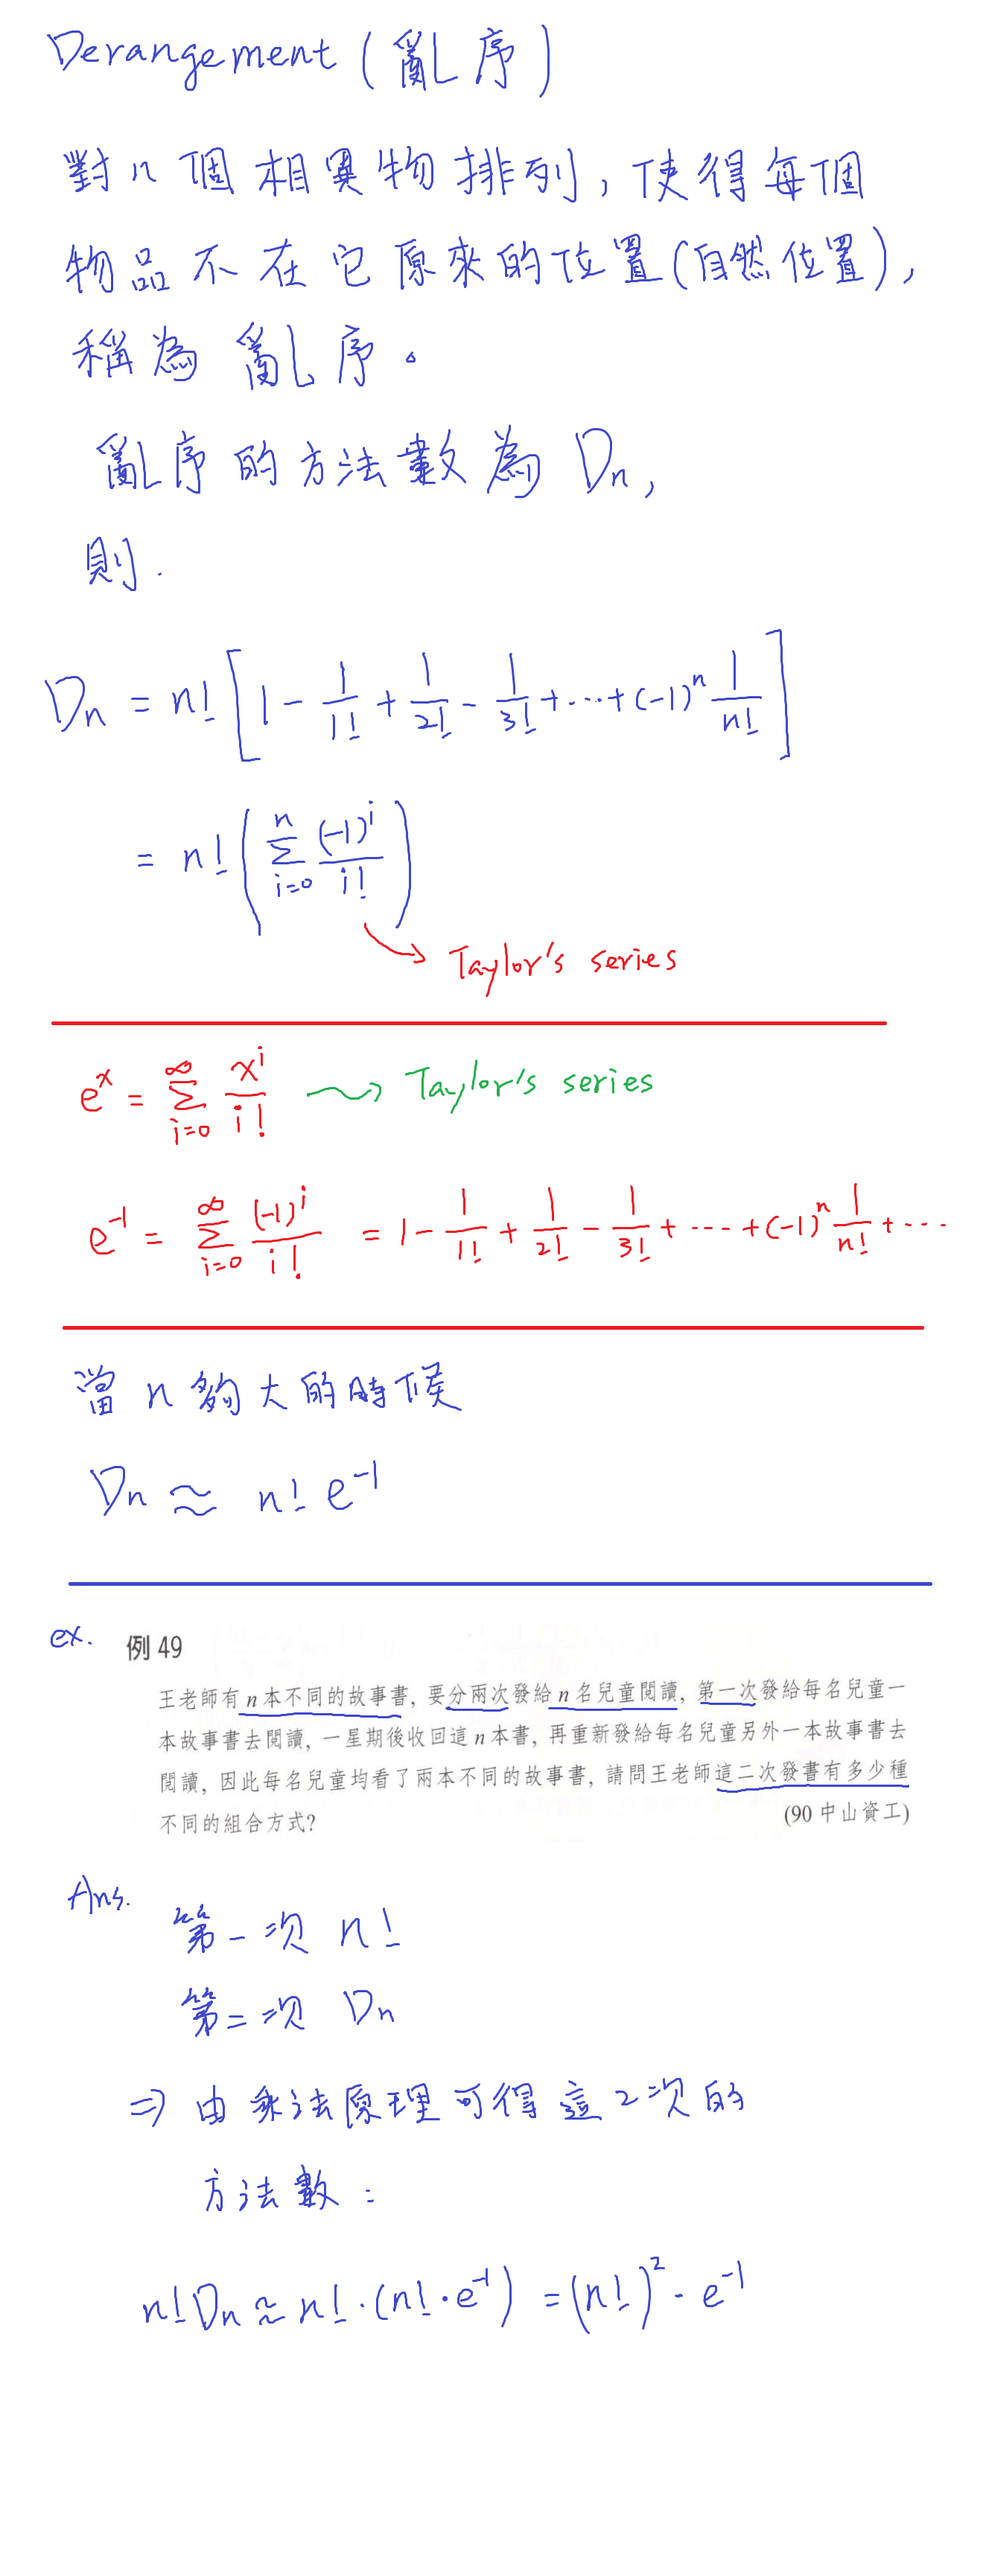 Derangement (亂序)
對n個相異物排列，使得每個
物品不在它原來的位置(自然位置)，
稱為亂序。
亂序的方法數為 Dn,
則.
Dn = n! [1 - 1/1! + 1/2! - 1/3! + ... + (-1)^n 1/n!]
= n! (∑_{i=0}^{n} (-1)^i / i!)
Taylor's series
e^x = ∑_{i=0}^{∞} x^i / i! ⇝ Taylor's series
e^-1 = ∑_{i=0}^{∞} (-1)^i / i! = 1 - 1/1! + 1/2! - 1/3! + ... + (-1)^n 1/n! + ...
當 n 夠大的時候
Dn ≈ n! e^-1
ex. 例 49
王老師有 n 本不同的故事書, 要分兩次發給 n 名兒童閱讀, 第一次發給每名兒童一
本故事書去閱讀, 一星期後收回這 n 本書, 再重新發給每名兒童另外一本故事書去
閱讀, 因此每名兒童均看了兩本不同的故事書, 請問王老師這二次發書有多少種
不同的組合方式? (90 中山資工)
Ans.
第一次 n!
第二次 Dn
⇒ 由乘法原理可得這2次的
方法數：
n! Dn ≈ n! · (n! · e^-1) = (n!)^2 · e^-1